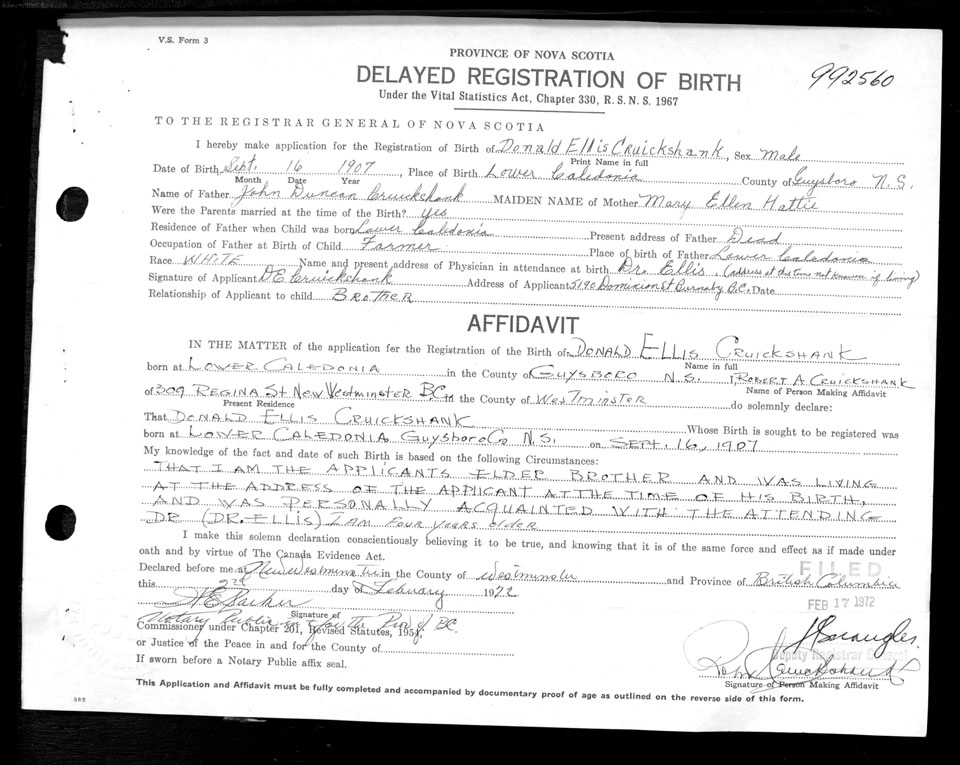 V.S. Form 3
PROVINCE OF NOVA SCOTIA
DELAYED REGISTRATION OF BIRTH
992560
Under the Vital Statistics Act, Chapter 330, R.S.N.S. 1967
TO THE REGISTRAR GENERAL OF NOVA SCOTIA
I hereby make application for the Registration of Birth of Donald Ellis Cruickshank, Sex Male
Print Name in full
Date of Birth Sept. 16 1907, Place of Birth Lower Caledonia County of Guysboro N.S.
Month Date Year
Name of Father John Duncan Cruickshank MAIDEN NAME of Mother Mary Ellen Hattie
Were the Parents married at the time of the Birth? yes
Residence of Father when Child was born Lower Caledonia Present address of Father Dead
Occupation of Father at Birth of Child Farmer Place of birth of Father Lower Caledonia
Race WHITE Name and present address of Physician in attendance at birth Dr. Ellis. (address at this time not known if living)
Signature of Applicant D E Cruickshank Address of Applicant 5190 Dominion St Burnaby B.C. Date
Relationship of Applicant to child BROTHER
AFFIDAVIT
IN THE MATTER of the application for the Registration of the Birth of DONALD ELLIS CRUICKSHANK
Name in full
born at LOWER CALEDONIA in the County of GUYSBORO N.S. I ROBERT A CRUICKSHANK
Name of Person Making Affidavit
of 309 REGINA St New Westminster BC in the County of Westminster do solemnly declare:
Present Residence
That DONALD ELLIS CRUICKSHANK Whose Birth is sought to be registered was
born at LOWER CALEDONIA Guysboro Co N.S. on SEPT. 16, 1907
My knowledge of the fact and date of such Birth is based on the following Circumstances:
THAT I AM THE APPLICANTS ELDER BROTHER AND WAS LIVING
AT THE ADDRESS OF THE APPLICANT AT THE TIME OF HIS BIRTH,
AND WAS PERSONALLY ACQUAINTED WITH THE ATTENDING
DR (DR. ELLIS) I AM Four years older
I make this solemn declaration conscientiously believing it to be true, and knowing that it is of the same force and effect as if made under
oath and by virtue of The Canada Evidence Act.
Declared before me at New Westminster in the County of Westminster and Province of British Columbia
FILED
this 2nd day of February 1972
FEB 17 1972
Parker
Signature of
Notary Public in & for the Prov of BC.
Commissioner under Chapter 201, Revised Statutes, 1954,
or Justice of the Peace in and for the County of
Deputy Registrar General
If sworn before a Notary Public affix seal.
Signature of Person Making Affidavit
This Application and Affidavit must be fully completed and accompanied by documentary proof of age as outlined on the reverse side of this form.